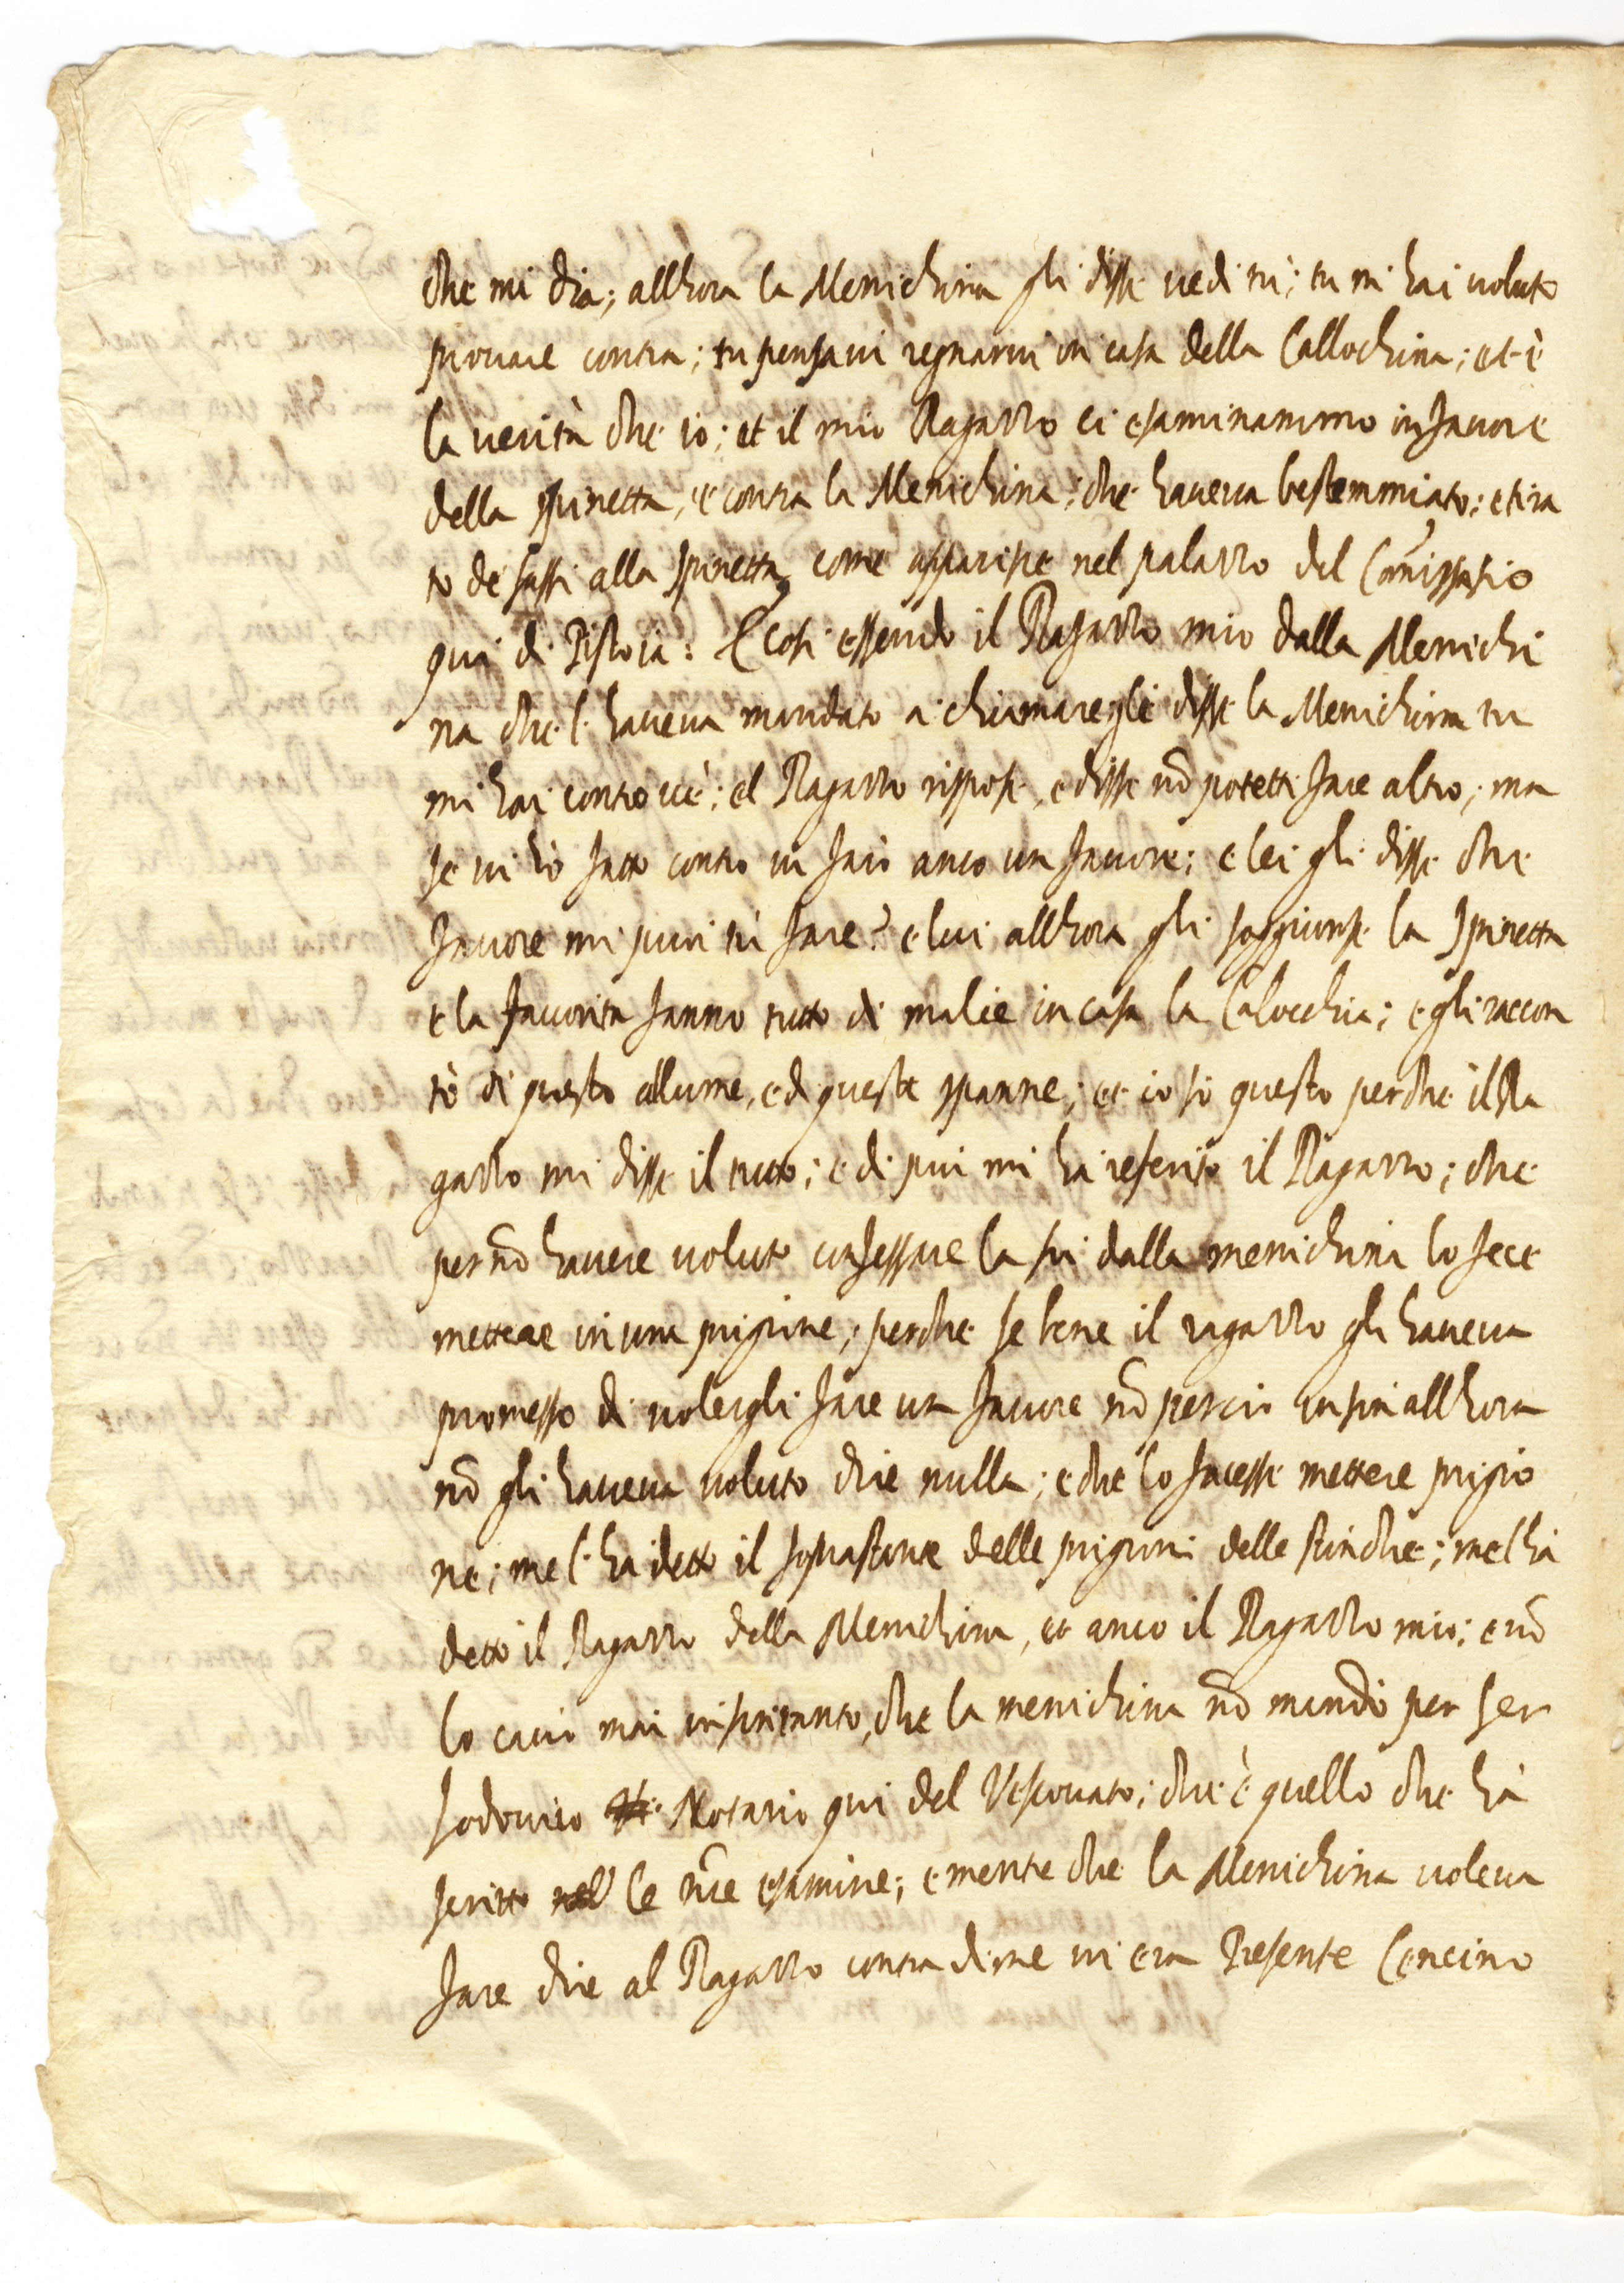 che mi dia; allhora la Menichina gli disse vedi tù; tu mi hai voluto
provare contra; tu pensavi regnarvi in casa della Callochina; et è
la verità che io; et il mio Ragazzo ci esaminammo in favore
della spinetta, e contra la Menichina; che haveva bestemmiato; e tira
to de sassi alla spinetta come apparisce nel palazzo del Com̃issario
qui di Pistoia: E cosi essendo il Ragazzo mio dalla Menichi
na che l'haveva mandato a chiamare gli disse la Menichina tu
mi hai contro è; el Ragazzo rispose, e disse nõ potetti fare altro; ma
se vi hò fatto contro vi farò anco un favore; e lei gli disse che
favore mi puoi tù fare? e lui allhora gli soggiunse la Spinetta
e la favorita fanno tutto dì malie in casa la Calocchia; e gli raccon
tò di questo allume, e di queste spanne; et io sò questo perche il Ra
gazzo mi disse il tutto; e di piu mi hà referito il Ragazzo; che
per nõ havere voluto confessare la su dalla menichina lo fece
mettere in una prigione; perche se bene il ragazzo gli haveva
promesso di volergli fare un favore nõ perciò insin allhora
nõ gli haveva voluto dire nulla; e che lo facesse mettere prigio
ne; me l'hà detto il soprastante delle prigioni delle stinche; me l hà
detto il Ragazzo della Menichina, et anco il Ragazzo mio; e nõ
lo cavò mai insin tanto, che la menichina nõ mandò per ser
Lodovico Notario qui del Vescovato; che è quello che hà
scritto le ñre esamine; e mentre che la Menichina voleva
fare dire al Ragazzo contra di me vi era Presente Cencino